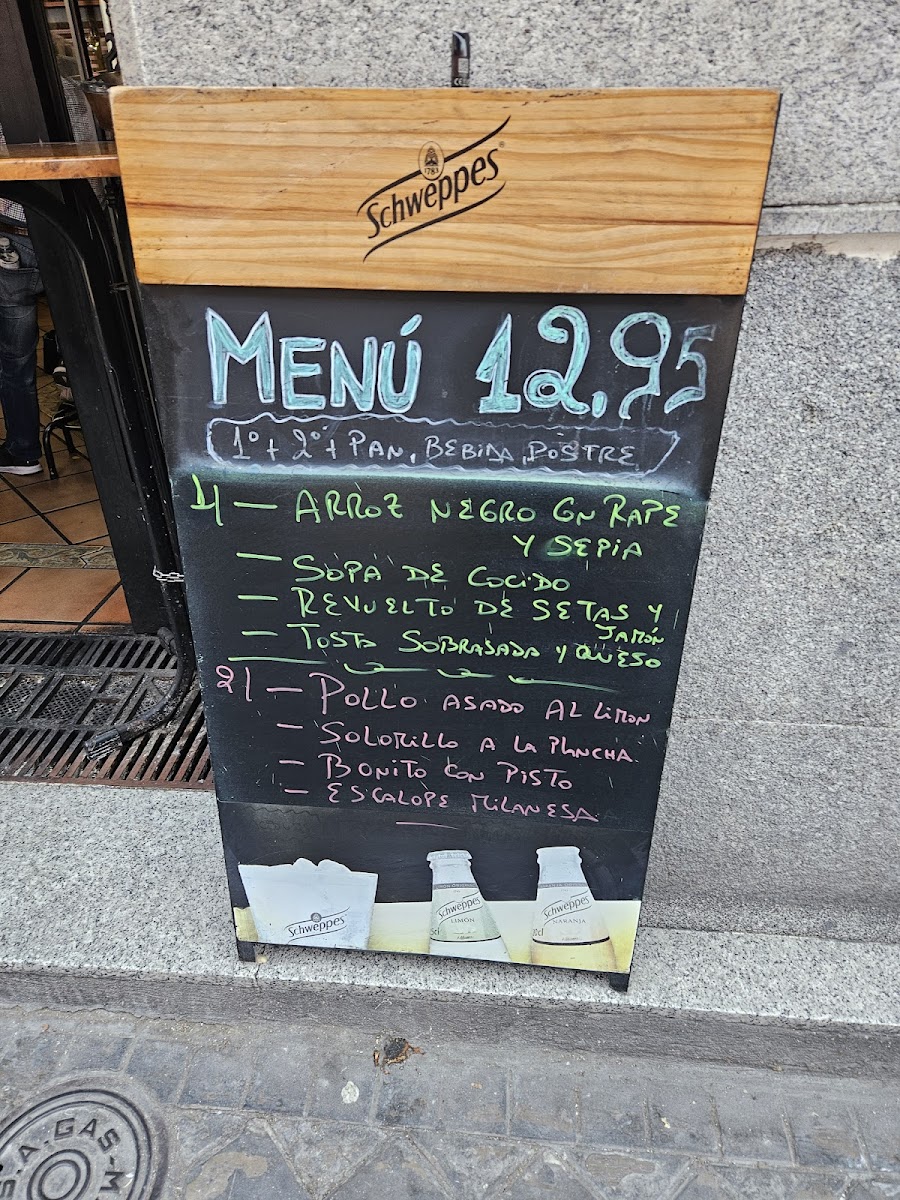 1783
Schweppes
MENÚ 12,95
1º + 2º + PAN, BEBIDA, POSTRE
1/ — ARROZ NEGRO CN RAPE
Y SEPIA
— SOPA DE COCIDO
— REVUELTO DE SETAS Y
JAMÓN
— TOSTA SOBRASADA Y QUESO
2/ — POLLO ASADO AL LIMON
— SOLOMILLO A LA PLANCHA
— BONITO CON PISTO
— ESCALOPE MILANESA
Schweppes
Schweppes
LIMÓN
Schweppes
NARANJA
S.A. GAS-M